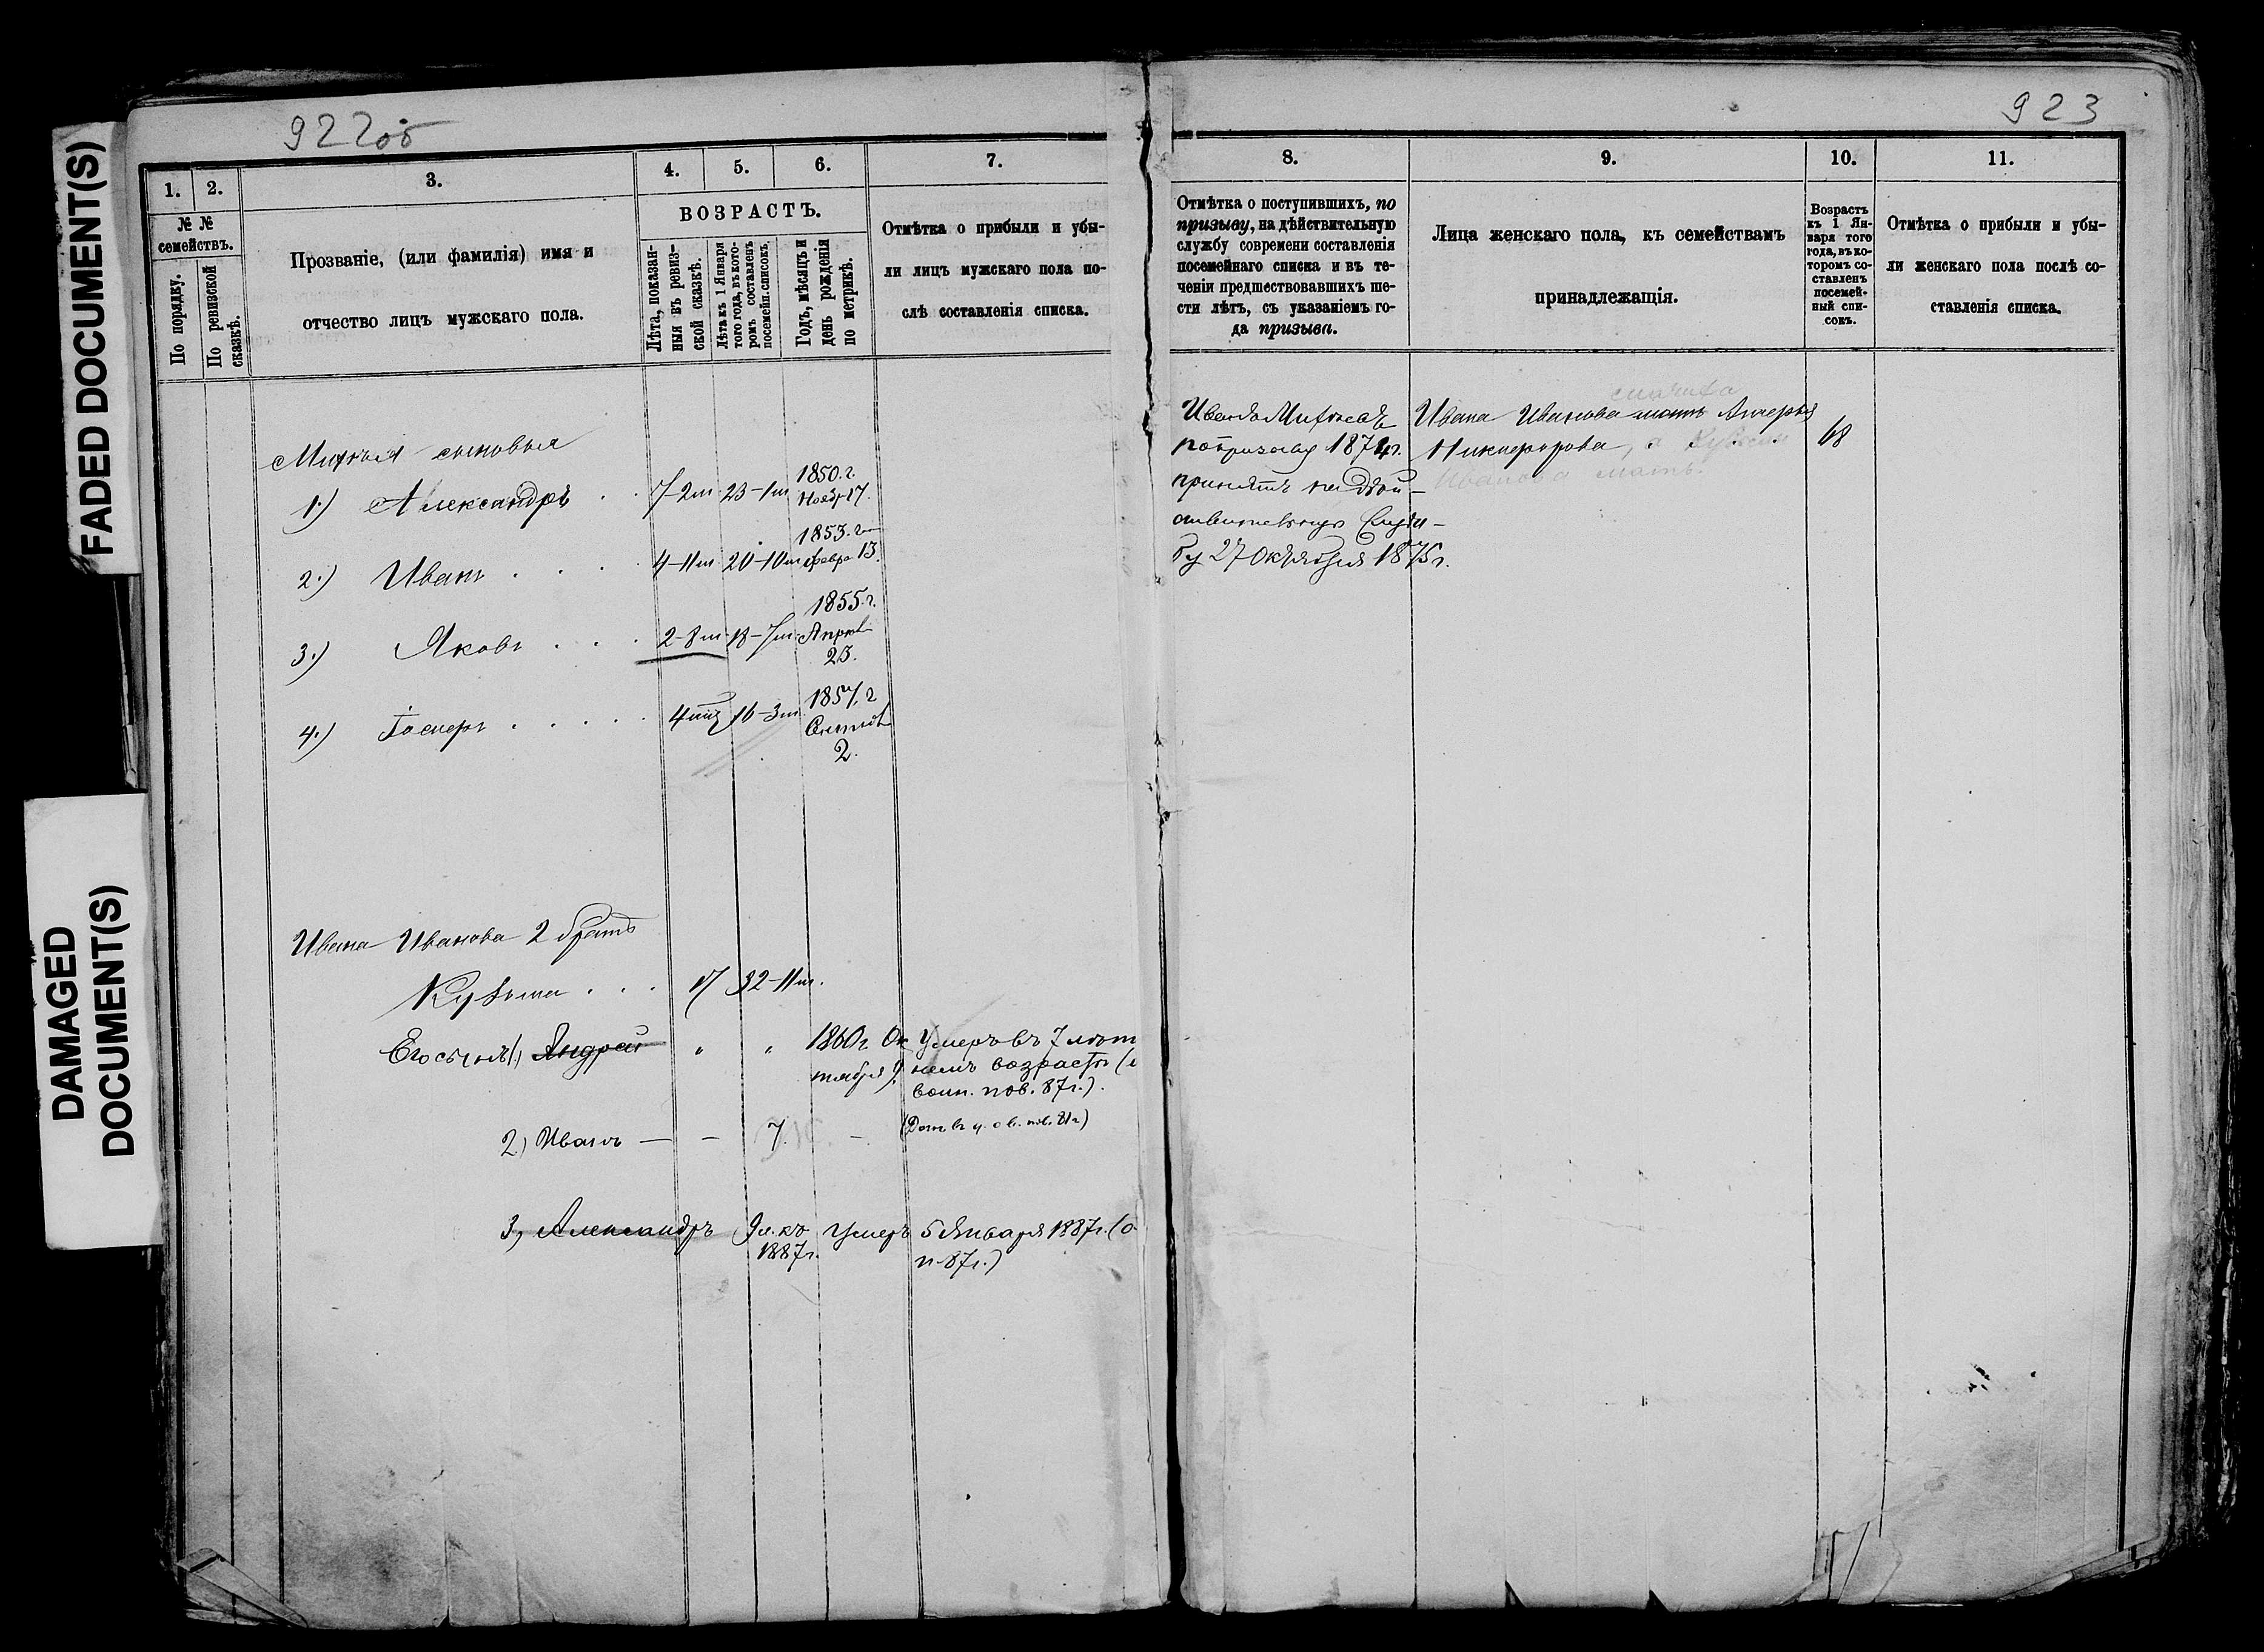 FADED DOCUMENT(S)
DAMAGED
DOCUMENT(S)
922об
1.
2.
3.
4.
5.
6.
7.
№ №
семействъ.
По порядку.
По ревизской
сказкѣ.
Прозваніе, (или фамилія) имя и
отчество лицъ мужскаго пола.
ВОЗРАСТЪ.
Лѣта, показан-
ныя въ ревиз-
ской сказкѣ.
Лѣта къ 1 Января
того года, въ кото-
ромъ составленъ
посемейн. списокъ.
Годъ, мѣсяцъ и
день рожденія
по метрикѣ.
Отмѣтка о прибыли и убы-
ли лицъ мужскаго пола по-
слѣ составленія списка.
Михѣя сыновья
1850. г.
1.) Александръ . . 7-2м 23-1м Нояб. 17.
1853. г.
2.) Иванъ . . . 4-11м 20-10м февр 13.
1855. г.
3.) Яковъ . . . 2-8м 18-7м Апрѣл
23.
1857. г
4.) . . . . . 16-3м. Сентяб
2.
Ивана Иванова 2 братъ
Кузьма . . . 17 32-11м.
Его сынъ 1.) Андрей " " 1860г Ок Умеръ въ 7 лѣт
тября 9. немъ возрастѣ (
воин. пов. 87г.).
2.) Иванъ — — 7. —
3, Александръ 9 л. къ Умеръ 5 Января 1887г. (о.
1887г. п. 87г.)
923
8.
9.
10.
11.
Отмѣтка о поступившихъ, по
призыву, на дѣйствительную
службу современи составленія
посемейнаго списка и въ те-
ченіи предшествовавшихъ ше-
сти лѣтъ, съ указаніемъ го-
да призыва.
Лица женскаго пола, къ семействамъ
принадлежащія.
Возрастъ
къ 1 Ян-
варя того
года, въ ко-
торомъ со-
ставленъ
посемей-
ный спи-
сокъ.
Отмѣтка о прибыли и убы-
ли женскаго пола послѣ со-
ставленія списка.
Иванъ Михѣевъ
по призыву 1874г.
принятъ на дѣй-
ствительную служ-
бу 27 Октября 1875г.
Ивана Иванова мать
Никифорова, а
Иванова мать.
68